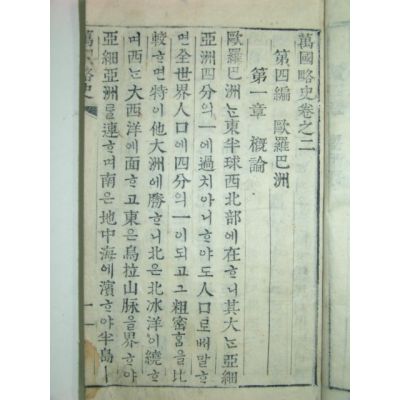 萬國略史卷之二
第四編 歐羅巴洲
第一章 概論
歐羅巴洲는東半球西北部에在ᄒᆞ니其大는亞細
亞洲四分의一에過치아니ᄒᆞ야도人口로ᄡᅥ말ᄒᆞ
면全世界人口에四分의一이되고그粗密홈을比
較ᄒᆞ면特이他大洲에勝ᄒᆞ니北은北冰洋이繞ᄒᆞ
며西는大西洋에面ᄒᆞ고東은烏拉山脈을界ᄒᆞ야
亞細亞洲를連ᄒᆞ며南은地中海에濱ᄒᆞ야半島ㅣ
萬國略史 一